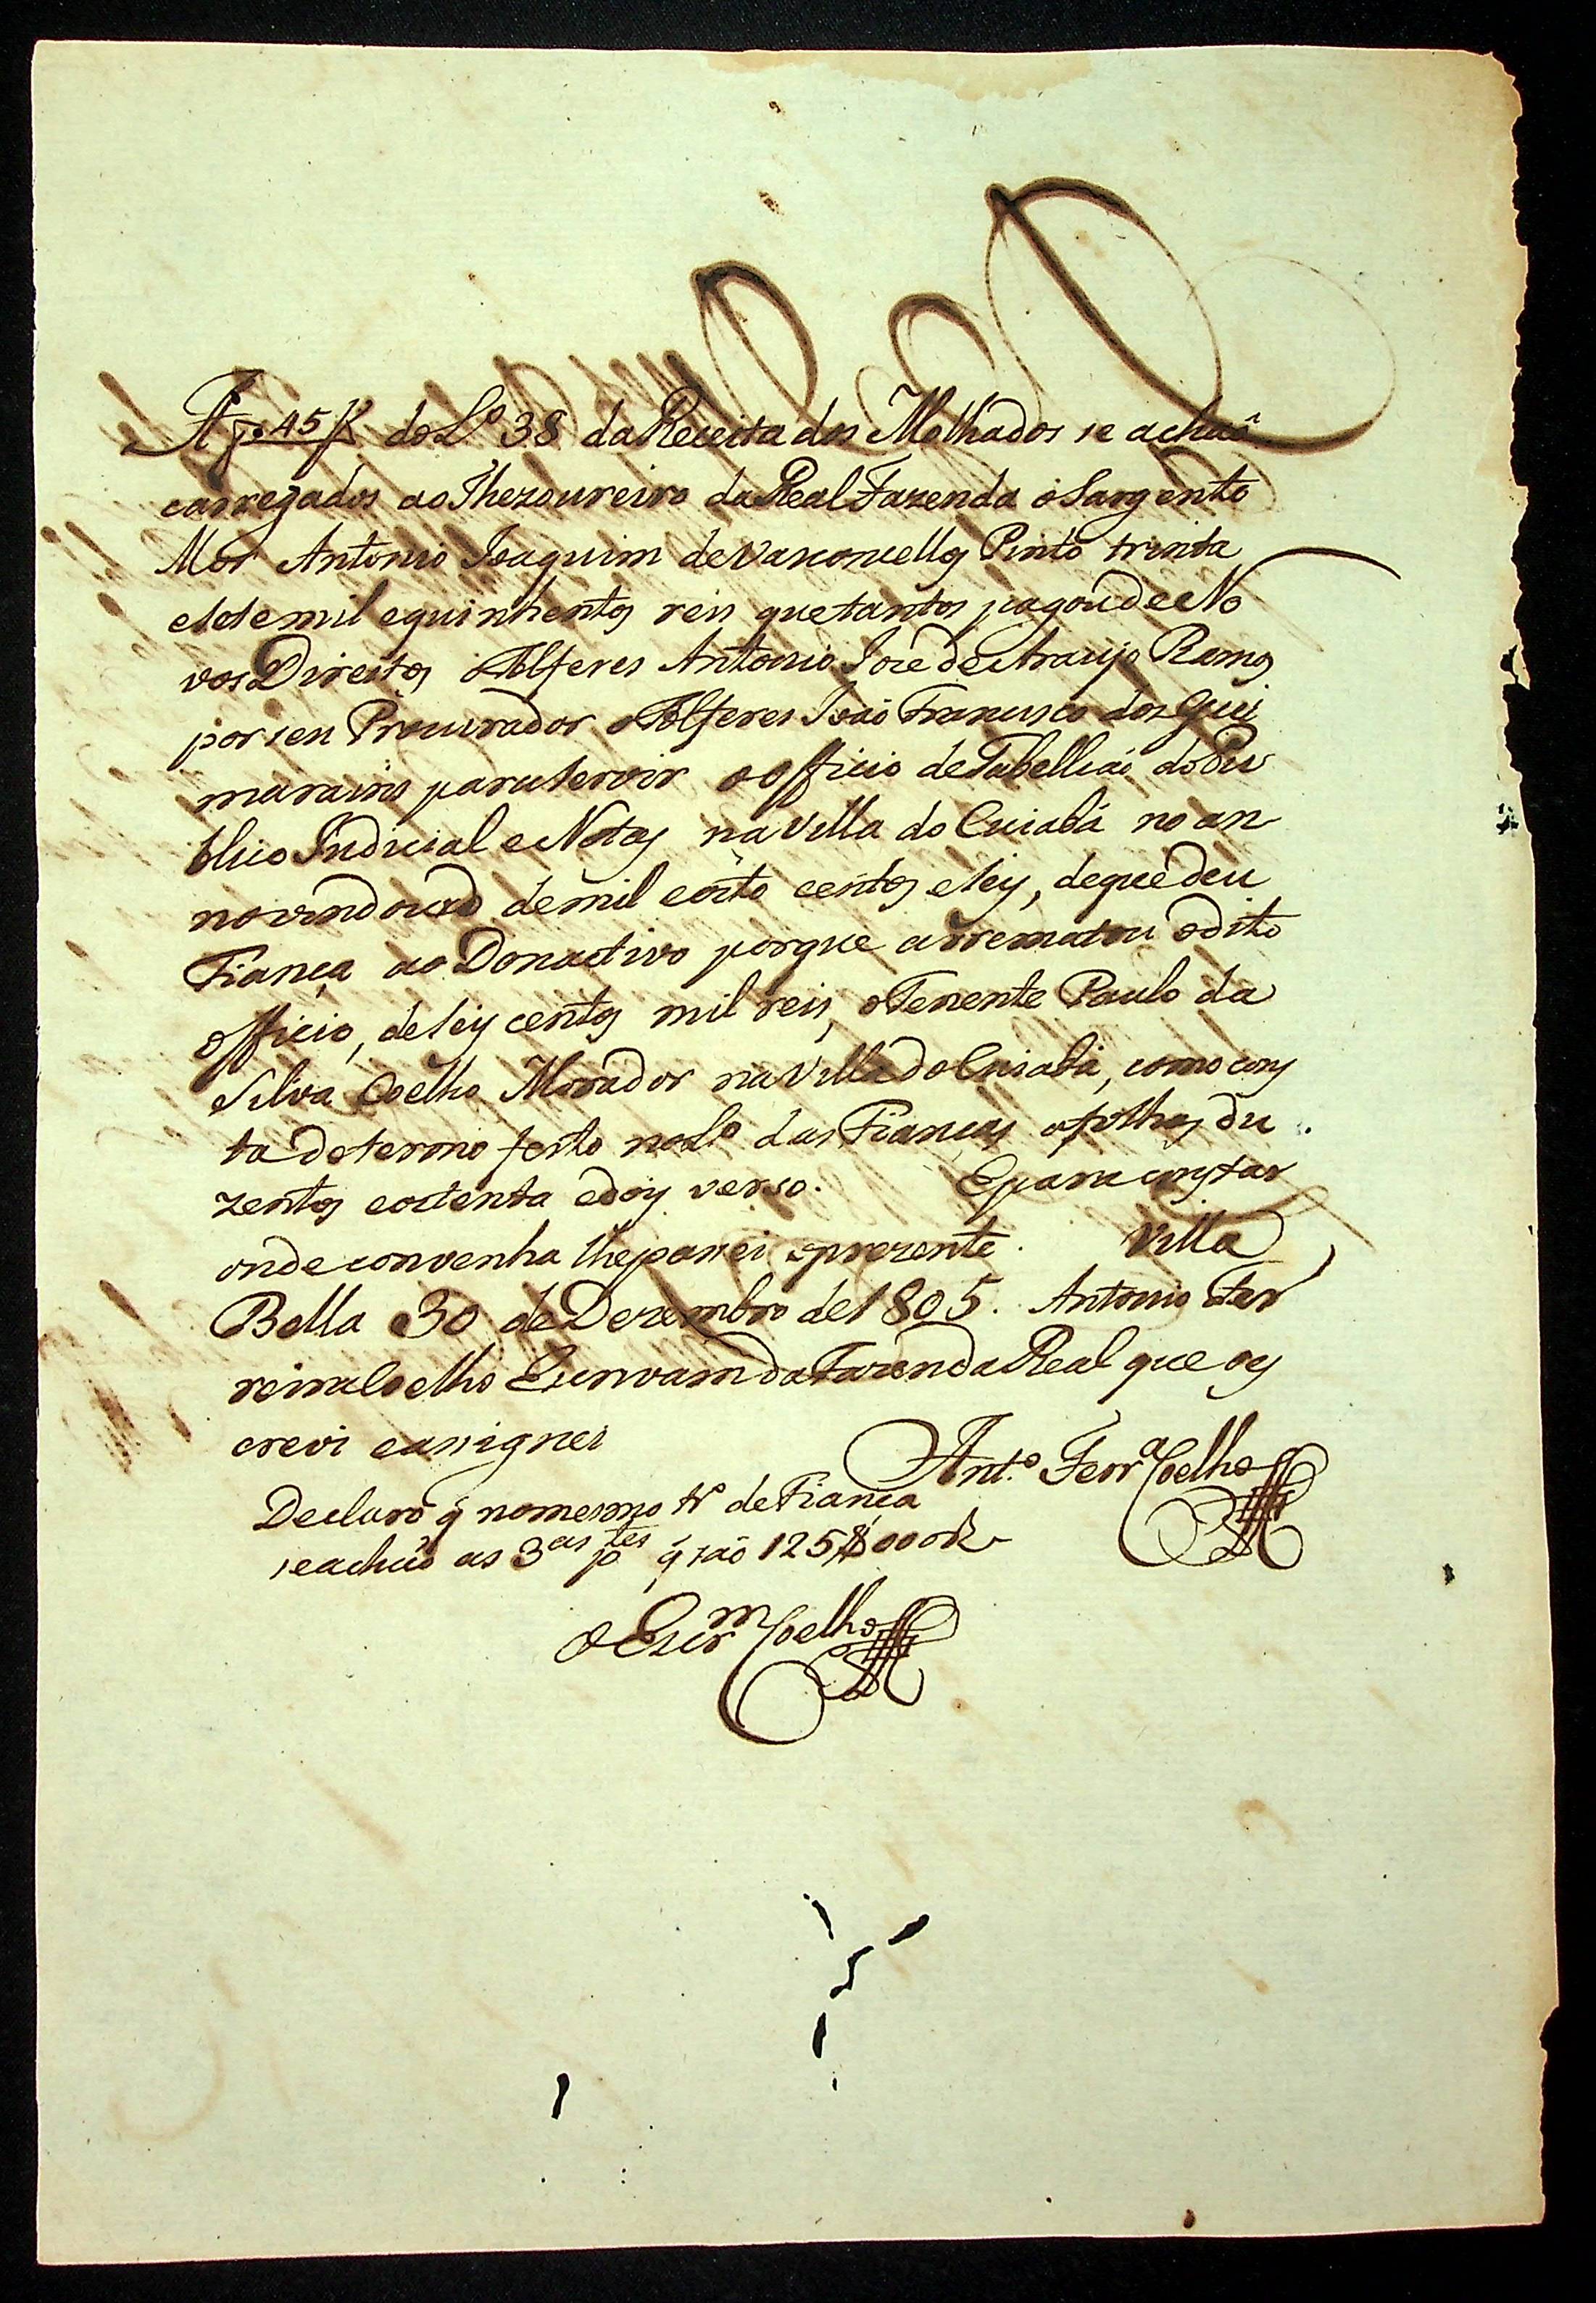 A f. 45 V do L.º 38 da Receita dos Molhados se achaõ
carregados ao Thezoureiro da Real Fazenda o Sargento
Mor Antonio Joaquim de Vasconcellos Pinto trinta
e sete mil e quinhentos reis que tantos pagou de No
vos Direitos o Alferes Antonio Joze de Araujo Ramos
por seu Procurador o Alferes Joaõ Francisco dos Gui
marains para servir o officio de Tabelliaõ do Pu
blico Judicial e Notas na Villa do Cuiabá no an
no vindouro de mil e oito centos e seis, de que deu
Fiança ao Donactivo porque arrematou o dito
officio, de seis centos mil reis, o Tenente Paulo da
Silva Coelho Morador na Villa do Cuiabá, como cons
ta do termo feito no L.º das Fianças a folhas du
zentos e oitenta e dois verso. E para constar
onde convenha lhe passei o prezente. Villa
Bella 30 de Dezembro de 1805. Antonio Fer
reira Coelho Escrivam da Fazenda Real que o es
crevi e assignei
Ant.º Ferr.ª Coelho
Declaro q̃ no mesmo tr.º de Fiança
se achaõ as 3.as p.tes q̃ saõ 125$000 R
O Escr.m Coelho